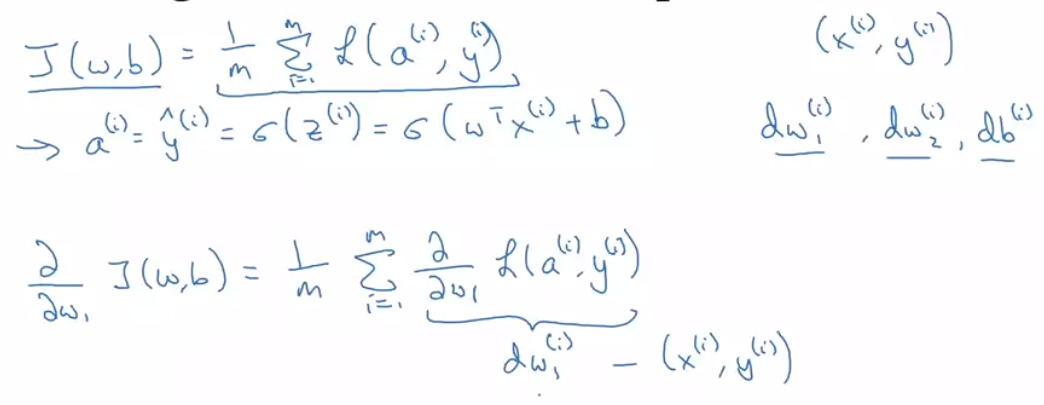 J(w,b) = 1/m ∑_{i=1}^{m} ℒ(a^{(i)}, y^{(i)})
(x^{(i)}, y^{(i)})
→ a^{(i)} = ŷ^{(i)} = σ(z^{(i)}) = σ(w^T x^{(i)} + b)
dw_1^{(i)}, dw_2^{(i)}, db^{(i)}
∂/∂w_1 J(w,b) = 1/m ∑_{i=1}^{m} ∂/∂w_1 ℒ(a^{(i)}, y^{(i)})
dw_1^{(i)} – (x^{(i)}, y^{(i)})